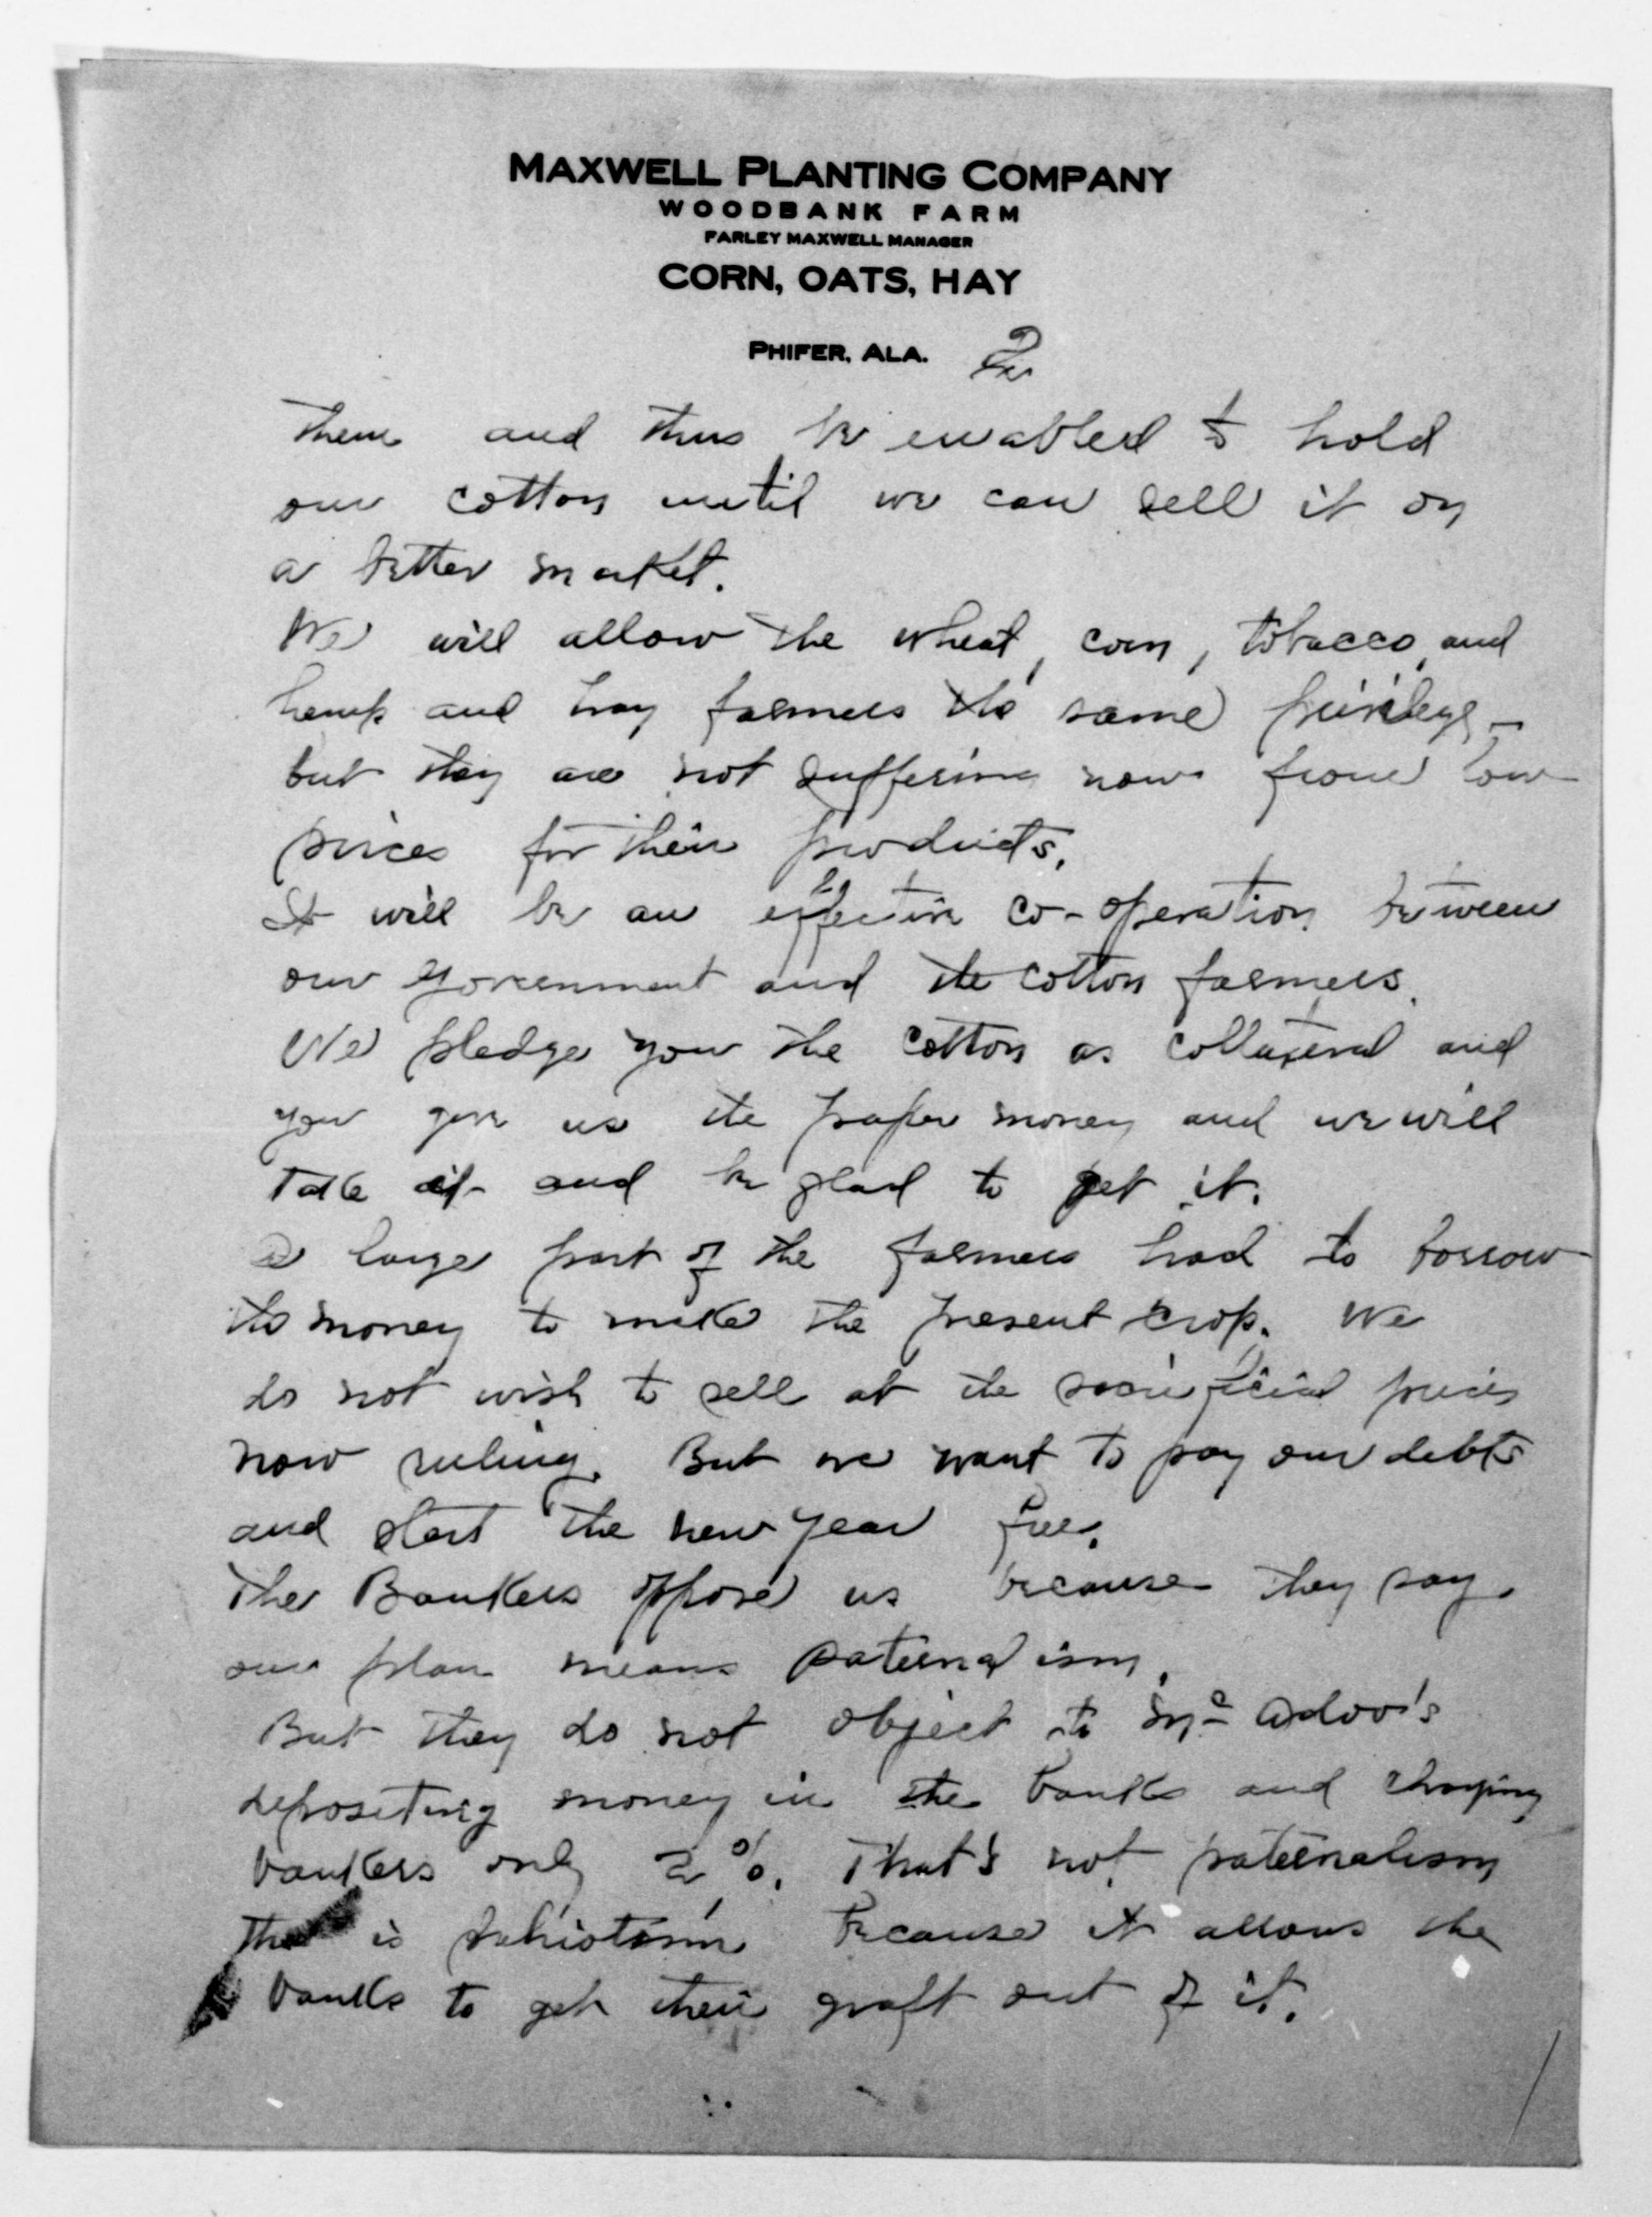 MAXWELL PLANTING COMPANY
WOODBANK FARM
FARLEY MAXWELL MANAGER
CORN, OATS, HAY
PHIFER, ALA. 2
them and thus be enabled to hold
our cotton until we can sell it on
a better market.
We will allow the wheat, corn, tobacco, and
hemp and hay farmers the same privilege -
but they are not suffering now from low
prices for their products.
It will be an effective co-operation between
our government and the cotton farmers.
We pledge you the cotton as collateral and
you give us the paper money and we will
take it and be glad to get it.
A large part of the farmers had to borrow
the money to make the present crop. We
do not wish to sell at the sacrificial prices
now ruling. But we want to pay our debts
and start the new year free.
The Bankers oppose us because they say
our plan means paternalism.
But they do not object to Mc Adoo's
depositing money in the banks and charging
bankers only 2%. That's not paternalism
that is patriotism because it allows the
banks to get their graft out of it.